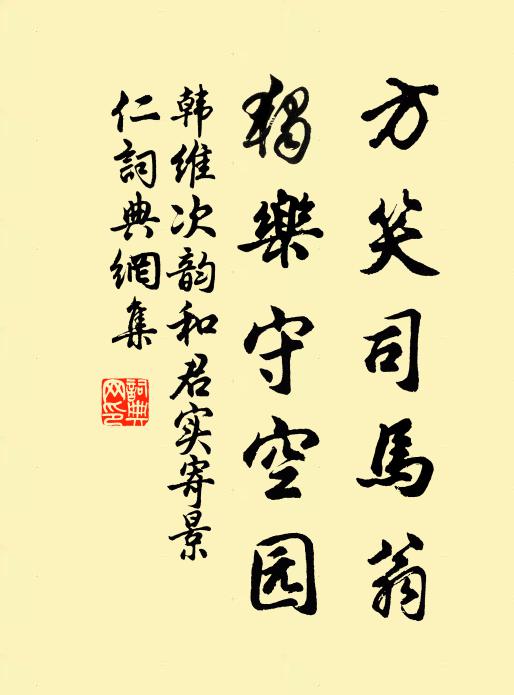 方笑司馬翁
獨樂守空园
韩维次韵和君实寄景
仁詞典網集
詞典
网印